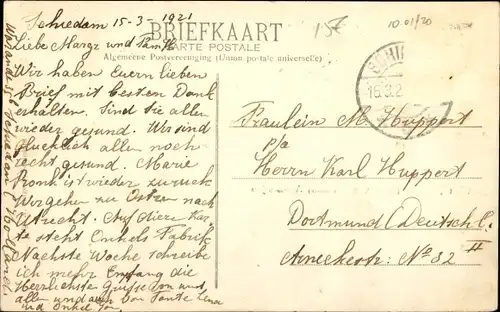 Schiedam 15-3-1921
BRIEFKAART
CARTE POSTALE
Algemeene Postvereeniging (Union postale universelle)
15E
10.01/20
Liebe Margz und Familie
Wir haben Euern lieben
Brief mit besten Dank
erhalten. Sind Sie alle
wieder gesund. Wir sind
glücklich allen noch
recht gesund. Marie
Pronk ist wieder zurück
Wir gehen zu Ostern nach
Utrecht. Auf diere Kar-
te steht Onkels Fabrik
Nächste Woche schreibe
ich mehr Empfang die
Herzlichste Grüsse von uns
allen und auch von Tante Lena
und Onkel
Schiedam (Holland).
SCHIE
15.3.2
Fraulein M. Huppert
p/a
Herrn Karl Huppert
Dortmund (Deutschl.
Arneckestr: No 82 II